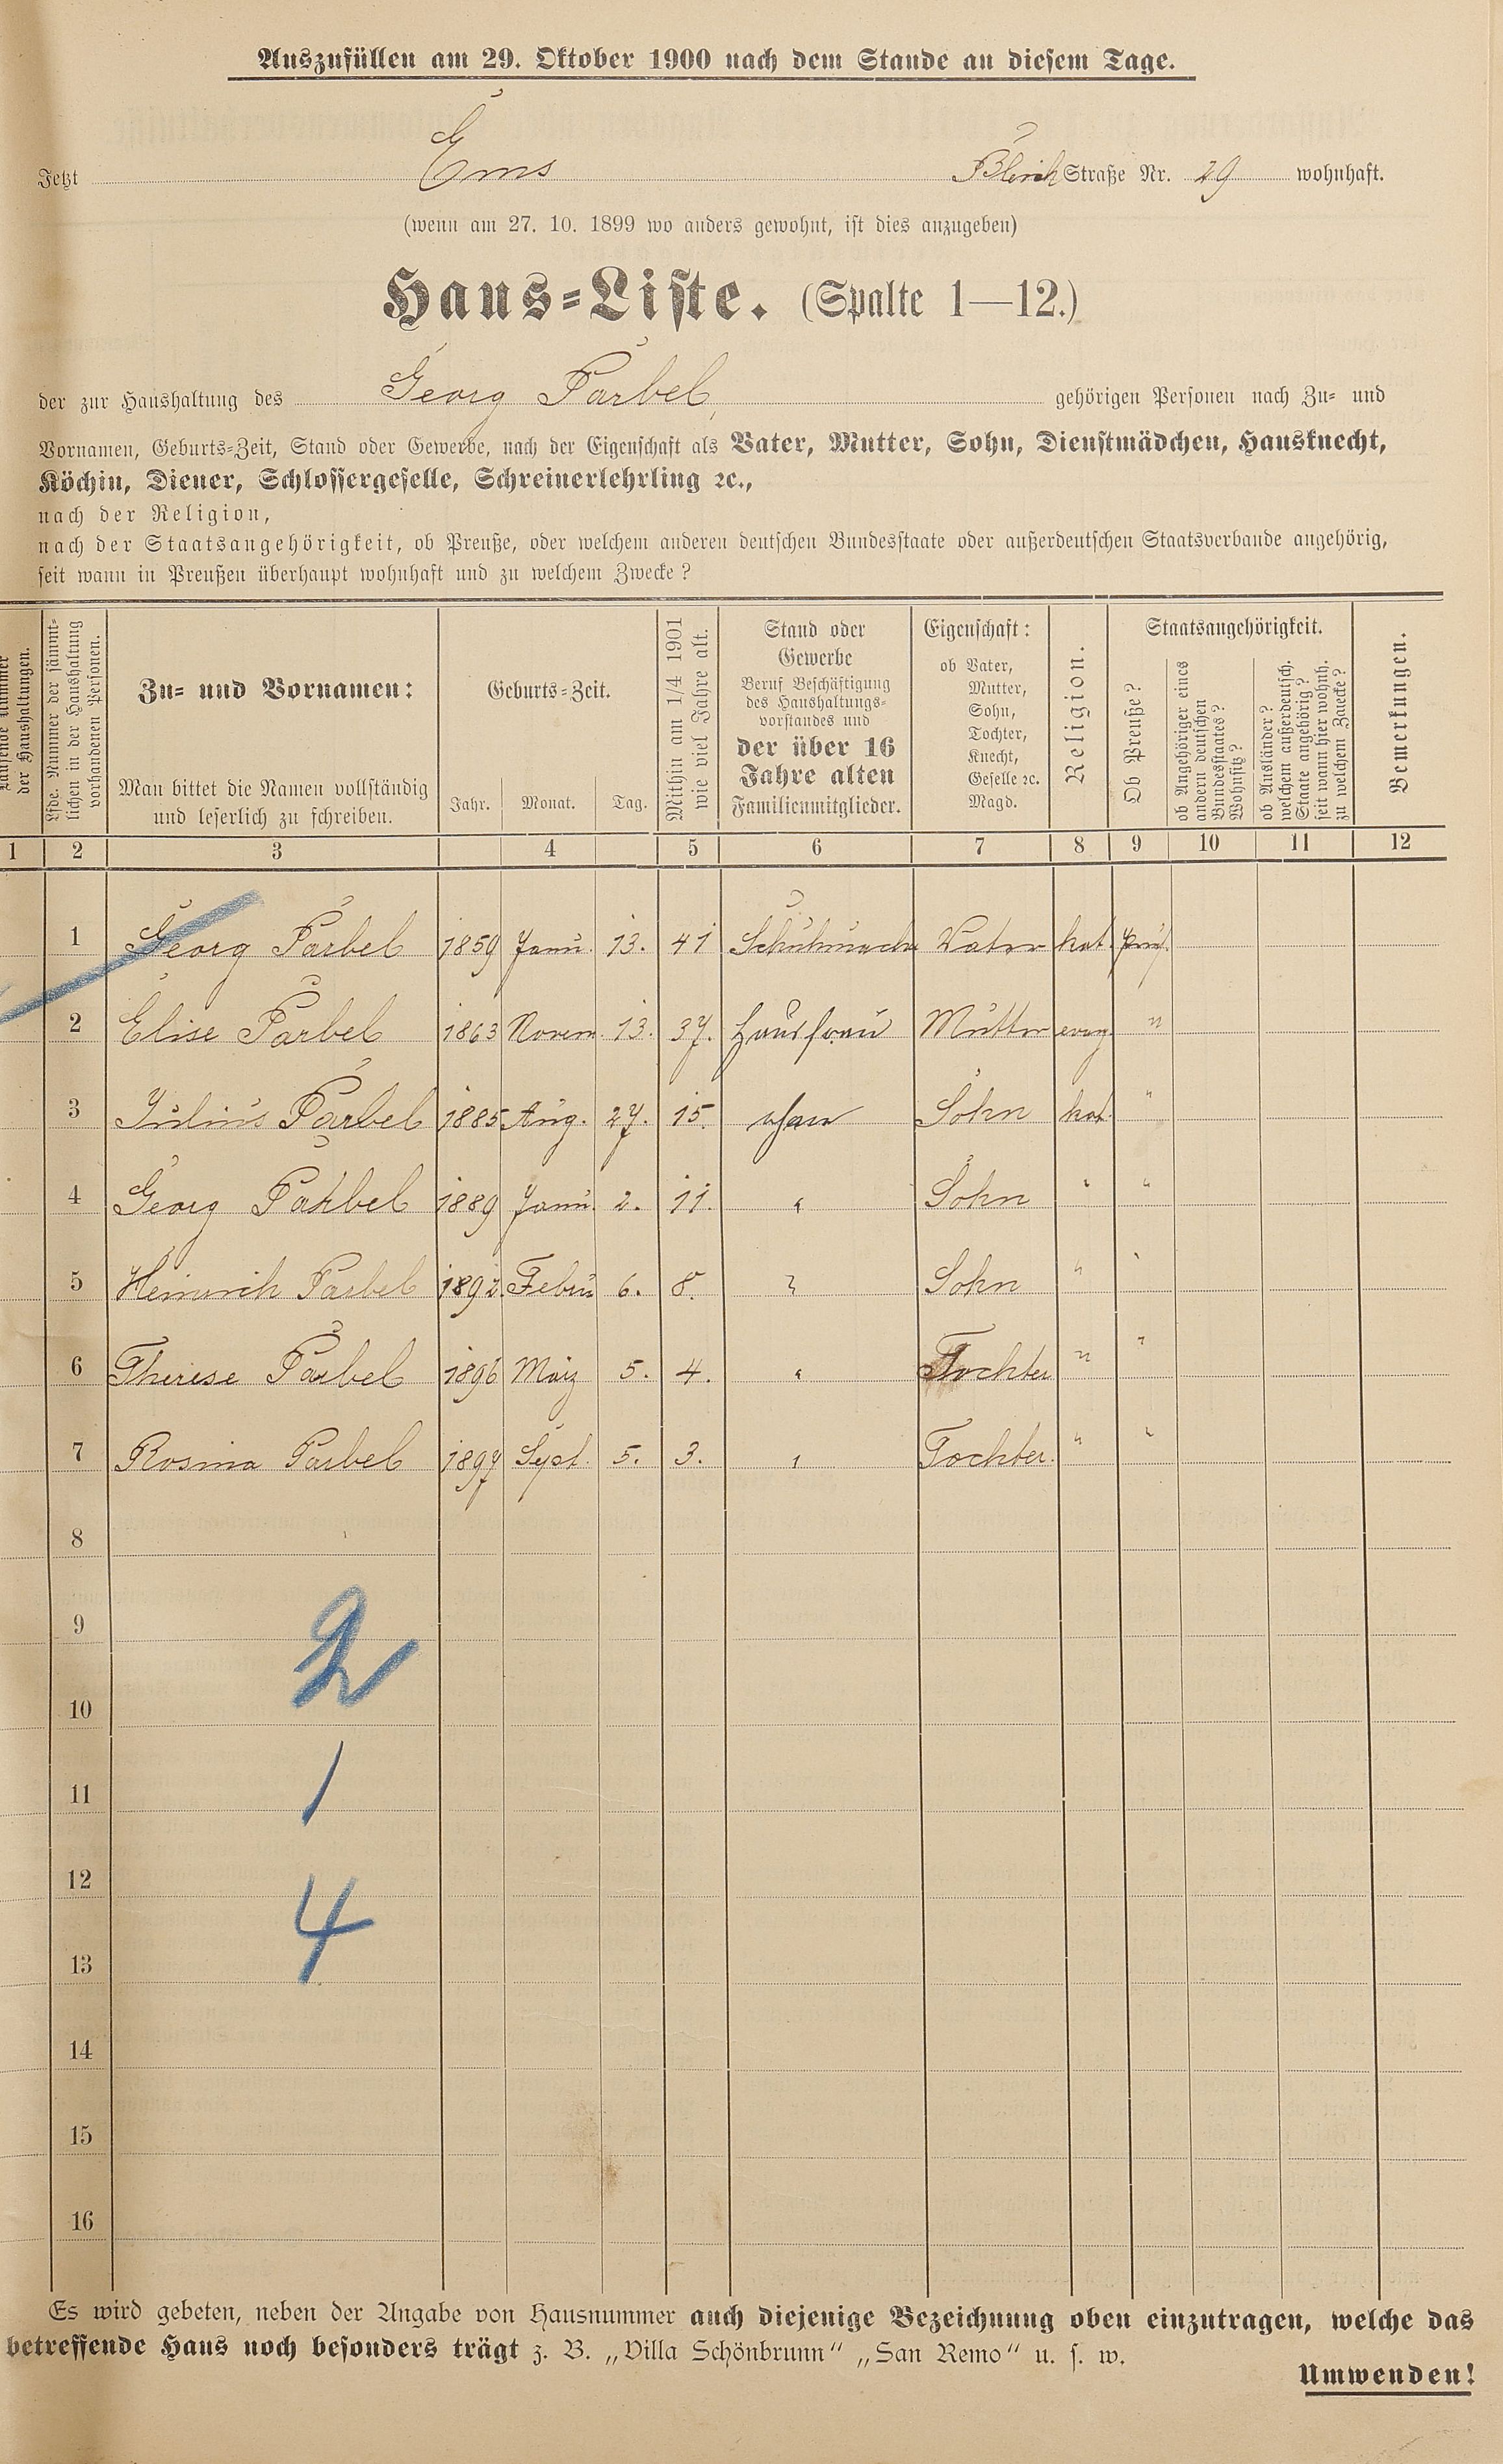 Auszufüllen am 29. Oktober 1900 nach dem Stande an diesem Tage.
Jetzt Ems Bleich Straße Nr. 29 wohnhaft.
(wenn am 27. 10. 1899 wo anders gewohnt, ist dies anzugeben)
Haus-Liste. (Spalte 1—12.)
der zur Haushaltung des Georg Parbel, gehörigen Personen nach Zu- und
Vornamen, Geburts-Zeit, Stand oder Gewerbe, nach der Eigenschaft als Vater, Mutter, Sohn, Dienstmädchen, Hausknecht,
Köchin, Diener, Schlossergeselle, Schreinerlehrling ꝛc.,
nach der Religion,
nach der Staatsangehörigkeit, ob Preuße, oder welchem anderen deutschen Bundesstaate oder außerdeutschen Staatsverbande angehörig,
seit wann in Preußen überhaupt wohnhaft und zu welchem Zwecke?
Laufende Nummer
der Haushaltungen.
Lfde. Nummer der sämmt-
lichen in der Haushaltung
vorhandenen Personen.
Zu- und Vornamen:
Man bittet die Namen vollständig
und leserlich zu schreiben.
Geburts-Zeit.
Jahr. Monat. Tag.
Mithin am 1/4 1901
wie viel Jahre alt.
Stand oder
Gewerbe
Beruf Beschäftigung
des Haushaltungs-
vorstandes und
der über 16
Jahre alten
Familienmitglieder.
Eigenschaft:
ob Vater,
Mutter,
Sohn,
Tochter,
Knecht,
Geselle ꝛc.
Magd.
Religion.
Staatsangehörigkeit.
Ob Preuße?
ob Angehöriger eines
andern deutschen
Bundesstaates?
Wohnsitz?
ob Ausländer?
welchem außerdeutsch.
Staate angehörig?
seit wann hier wohnh.
zu welchem Zwecke?
Bemerkungen.
1 2 3 4 5 6 7 8 9 10 11 12
1 Georg Parbel 1859 Janu. 13. 41 Schuhmacher Vater kat. preuß.
2 Elise Parbel 1863 Novem. 13. 37. Hausfrau Mutter evag. "
3 Julius Parbel 1885 Aug. 27. 15. ohne Sohn kat. "
4 Georg Parbel 1889 Janu. 2. 11. " Sohn " "
5 Heinrich Parbel 1892. Febru 6. 8. " Sohn " "
6 Therese Parbel 1896 März 5. 4. " Tochter " "
7 Rosina Parbel 1897 Sept. 5. 3. " Tochter. " "
8
9
2
10
11
1
12
4
13
14
15
16
Es wird gebeten, neben der Angabe von Hausnummer auch diejenige Bezeichnung oben einzutragen, welche das
betreffende Haus noch besonders trägt z. B. „Villa Schönbrunn“ „San Remo“ u. s. w.
Umwenden!